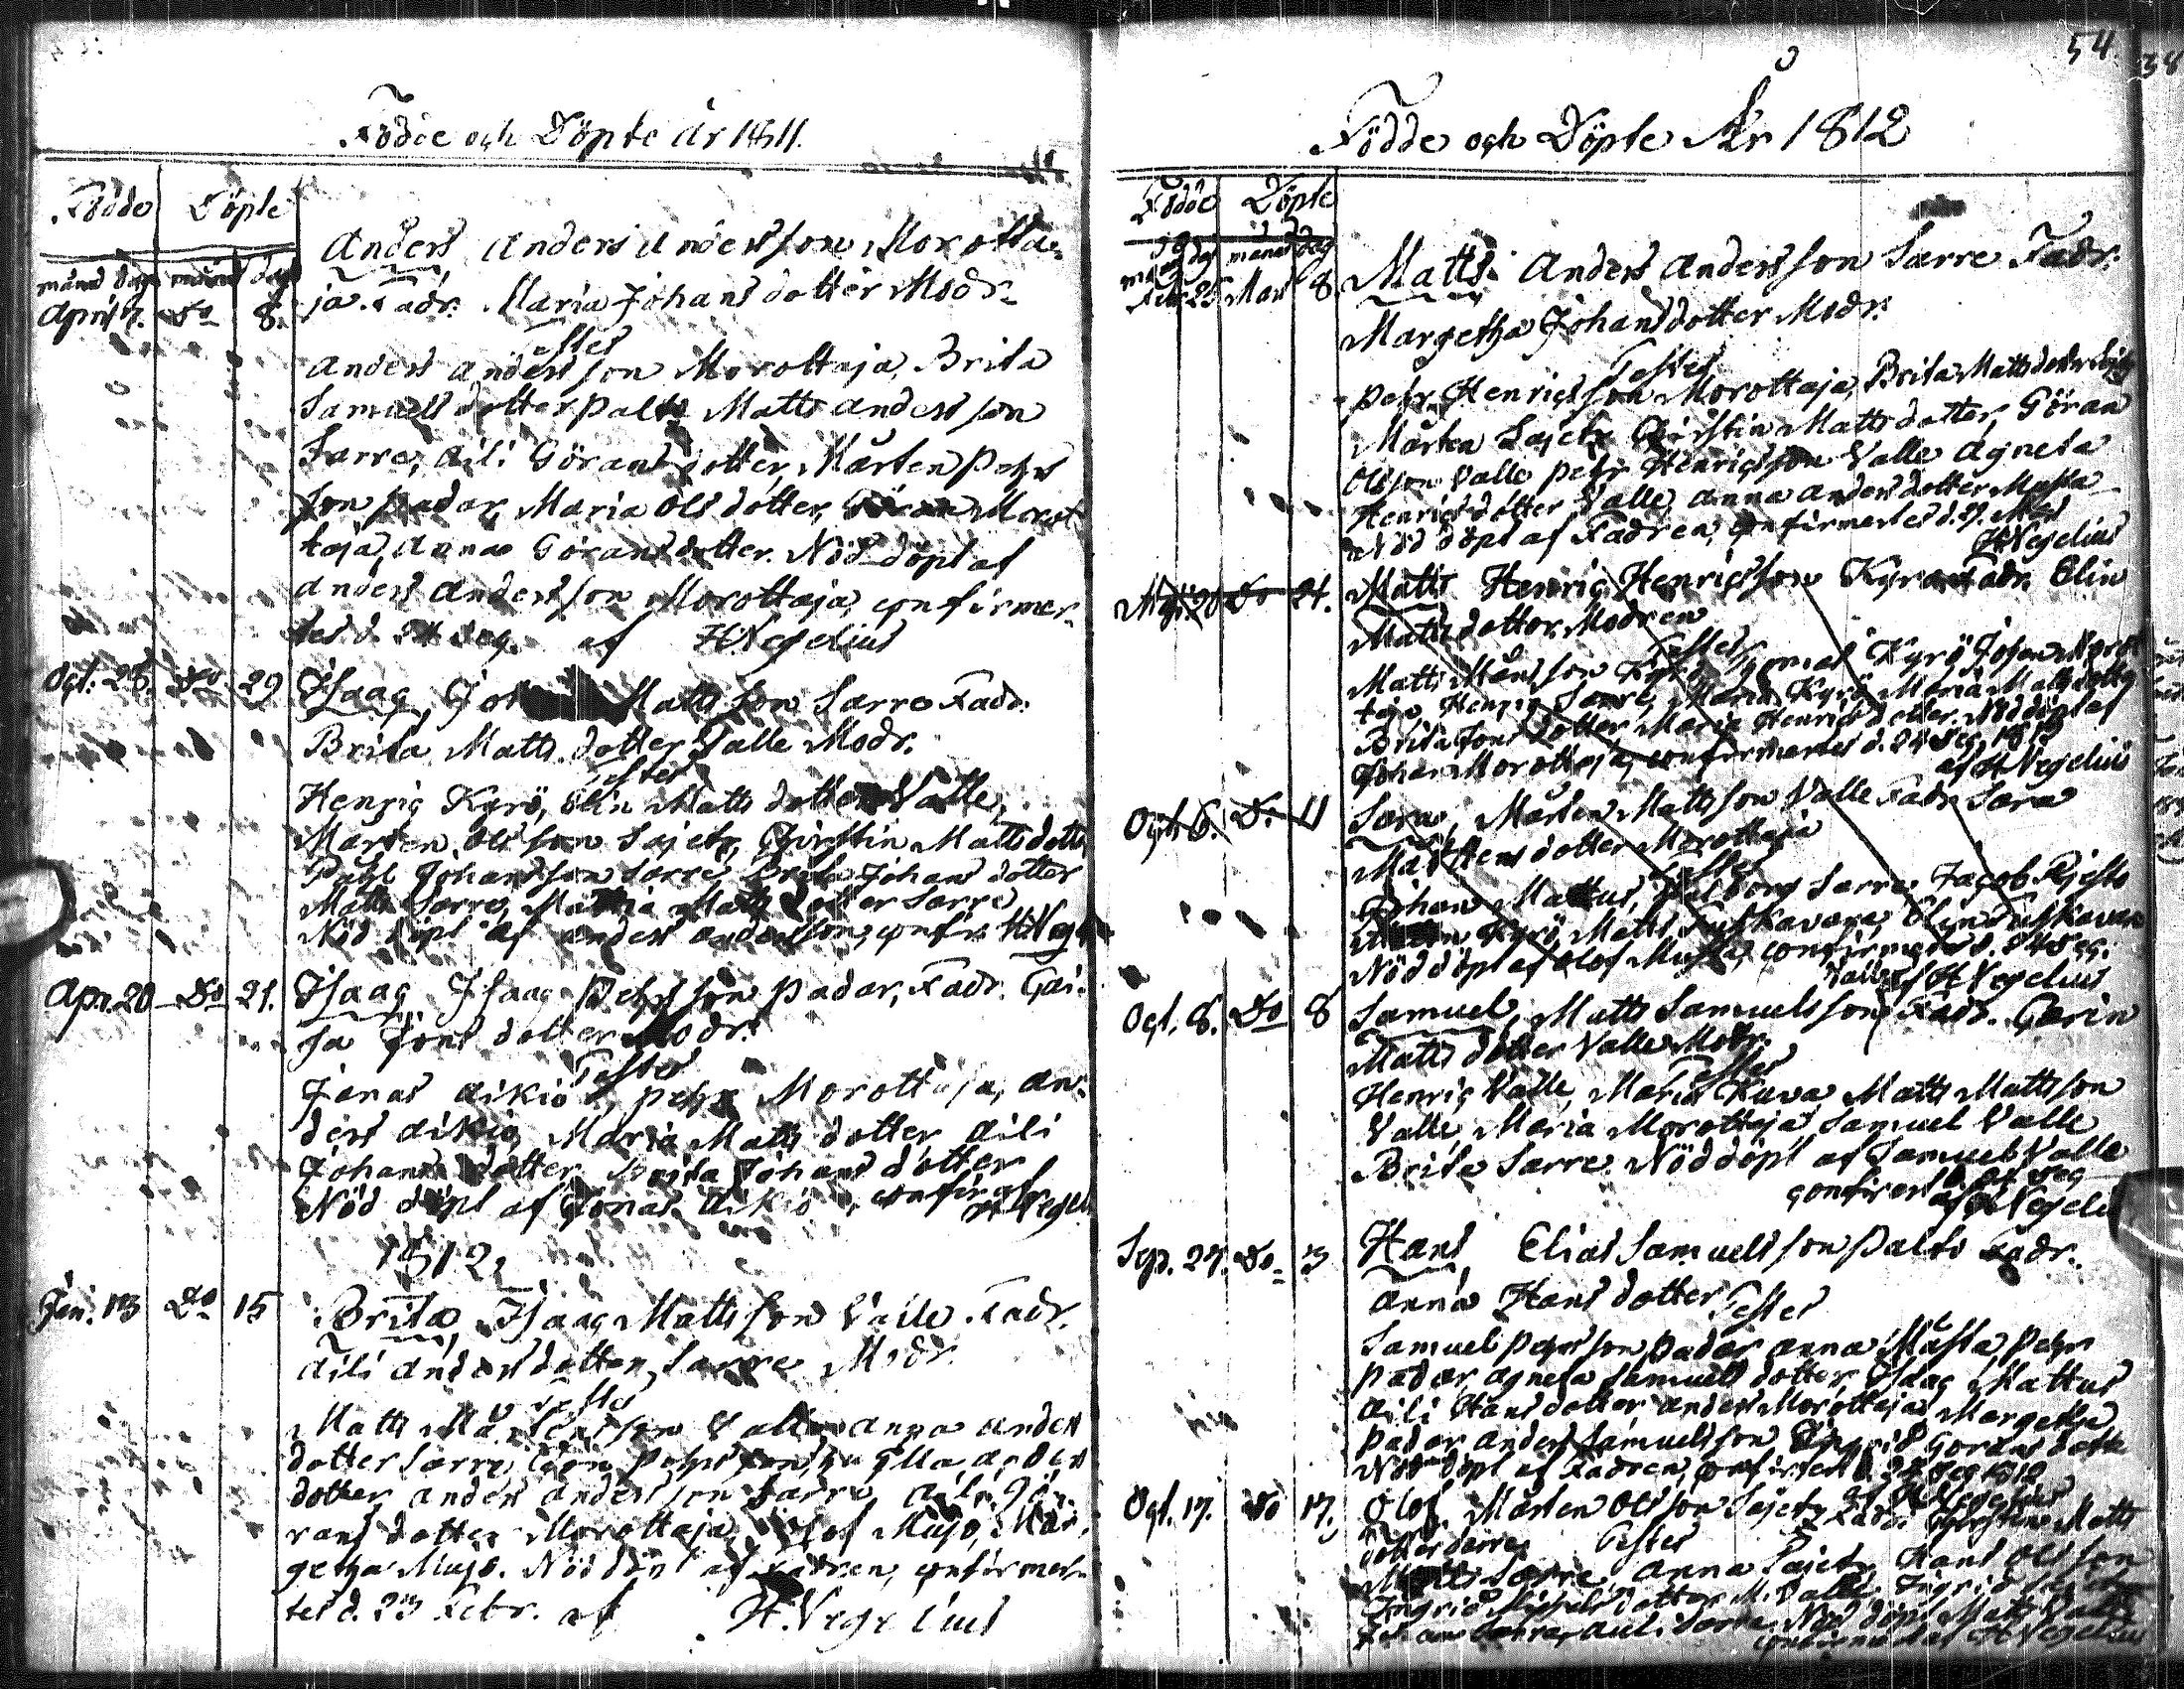 54
Födde och Döpte år 1811.
Födde Döpte
månd dag månd dag
Anders Anders Andersson Morotta-
April 7. Do 8. ja Fadr. Maria Johans dotter Modr.
Testes
Anders Andersson Morottaja, Brita
Samuels dotter Palto Matts Andersson
Sarre, Aili Görans dotter, Mårten Pehrs
son Padar, Maria Ols dotter, Göran Morot
taja, Anna Görans dotter. Nöd döpt af
Anders Andersson Morottaja, confirmer-
tes d. 24 Dec. af HWegelius
Oct. 28. Do 29 Isaac, Matts son Sarre Fadr.
Brita Matts dotter Valle Modr.
Testes
Henric Kyrö, Elin Matts dotter Valle,
Mårten Olsson Sajetz, Christin Matts dotter
Johansson Sarre, Brita Johans dotter
Matts Sarre, Maria Matts dotter Sarre
Nöd döpt af Anders Andersson, confir. HWeg
Apr. 20 Do 21. Isaac Isaac Pehrsson Padar, Fadr. Cai-
sa Jons dotter Modr.
Testes
Jonas Aikio, Pehr Morottaja, An-
ders Aikio, Maria Matts dotter, Aili
Johans dotter, Brita Johans dotter
Nöd döpt af Jonas Aikio, confir. af
HWegel
1812,
Jan. 13 Do 15 Brita Isaac Mattsson Valle Fadr.
Aili Anders dotter Sarre Modr.
Testes
Matts Mårtensson Valle Anna Anders
dotter Sarre, Pehrsson, Anders
dotter Anders Andersson Sarre Aili Gö-
rans dotter Morottaja, Olof Mujo, Mar-
getha Mujo. Nöd döpt af Fadren, confirmer-
tes d. 23 Febr. af H. Wegelius
Födde och Döpte År 1812
Födde Döpte
månd dag månd dag
Feb. 25 Mars 8. Matts Anders Andersson Sarre Fadr.
Margetha Johans dotter Modr.
Testes
Pehr Henricsson Morottaja, Brita Matts dotter
Mårten Sajetz Christin Matts dotter, Göran
Olsson Valle Pehr Henricsson Valle Agneta
Henrics dotter Valle, Anna Anders dotter Musta
Nöd döpt af Fadren, confirmertes d. 9. Mars
HWegelius
Do 21. Matts Henric Henricsson Kyrö Fadr. Elin
Matts dotter Modren
Testes
Matts Månsson Kyrö, Kyrö Johan Morot
taja, Henric Sarre, Maria Kyrö Maria Matts dotter
Brita Jons dotter Maria Henrics dotter. Nöd döpt af
Johan Morottaja, confirmertes d. 24 Dec. 1812
af HWegelius
Oct. 6. Do 11 Sara, Mårten Mattsson Valle Fadr. Sara
Mårtens dotter Morottaja
Testes
Johan Mattus, Sarre, Jacob
Kyrö, Matts Elin
Nöd döpt af Olof Musta, confirmertes d. 24 Dec.
af HWegelius
Oct. 8. Do 8 Samuel, Matts Samuelsson Fadr. Carin
Valle
Matts dotter Valle Modr.
Testes
Henric Valle, Maria Kuva Matts Mattsson
Valle, Maria Morottaja Samuel Valle
Brita Sarre. Nöd döpt af Samuel Valle
confirert d. 24 Dec
af HWegelius
Sep. 27. Do 3 Hans Elias Samuelsson Palto Fadr.
Anna Hans dotter
Testes
Samuel Pehrsson Padar Anna Musta, Pehr
Padar, Agneta Samuels dotter, Isaac Mattus
Aili Hans dotter, Anders Morottaja Margetha
Padar Anders Samuelsson Ingrid Görans dotter
Nöd döpt af Fadren, confirert d. 24 Dec 1812
af HWegelius
Oct. 17. Do 17. Olof, Mårten Olsson Sajetz Fadr. Christin Matts
dotter Sarre,
Testes
Matts Sarre, Anna Sajetz, Hans Olsson
Ingrid dotter M. Valle, Ingrid
Johan Sarre, Auli Sarre. Nöd döpt Matts Valle
confirmertes af HWegelius